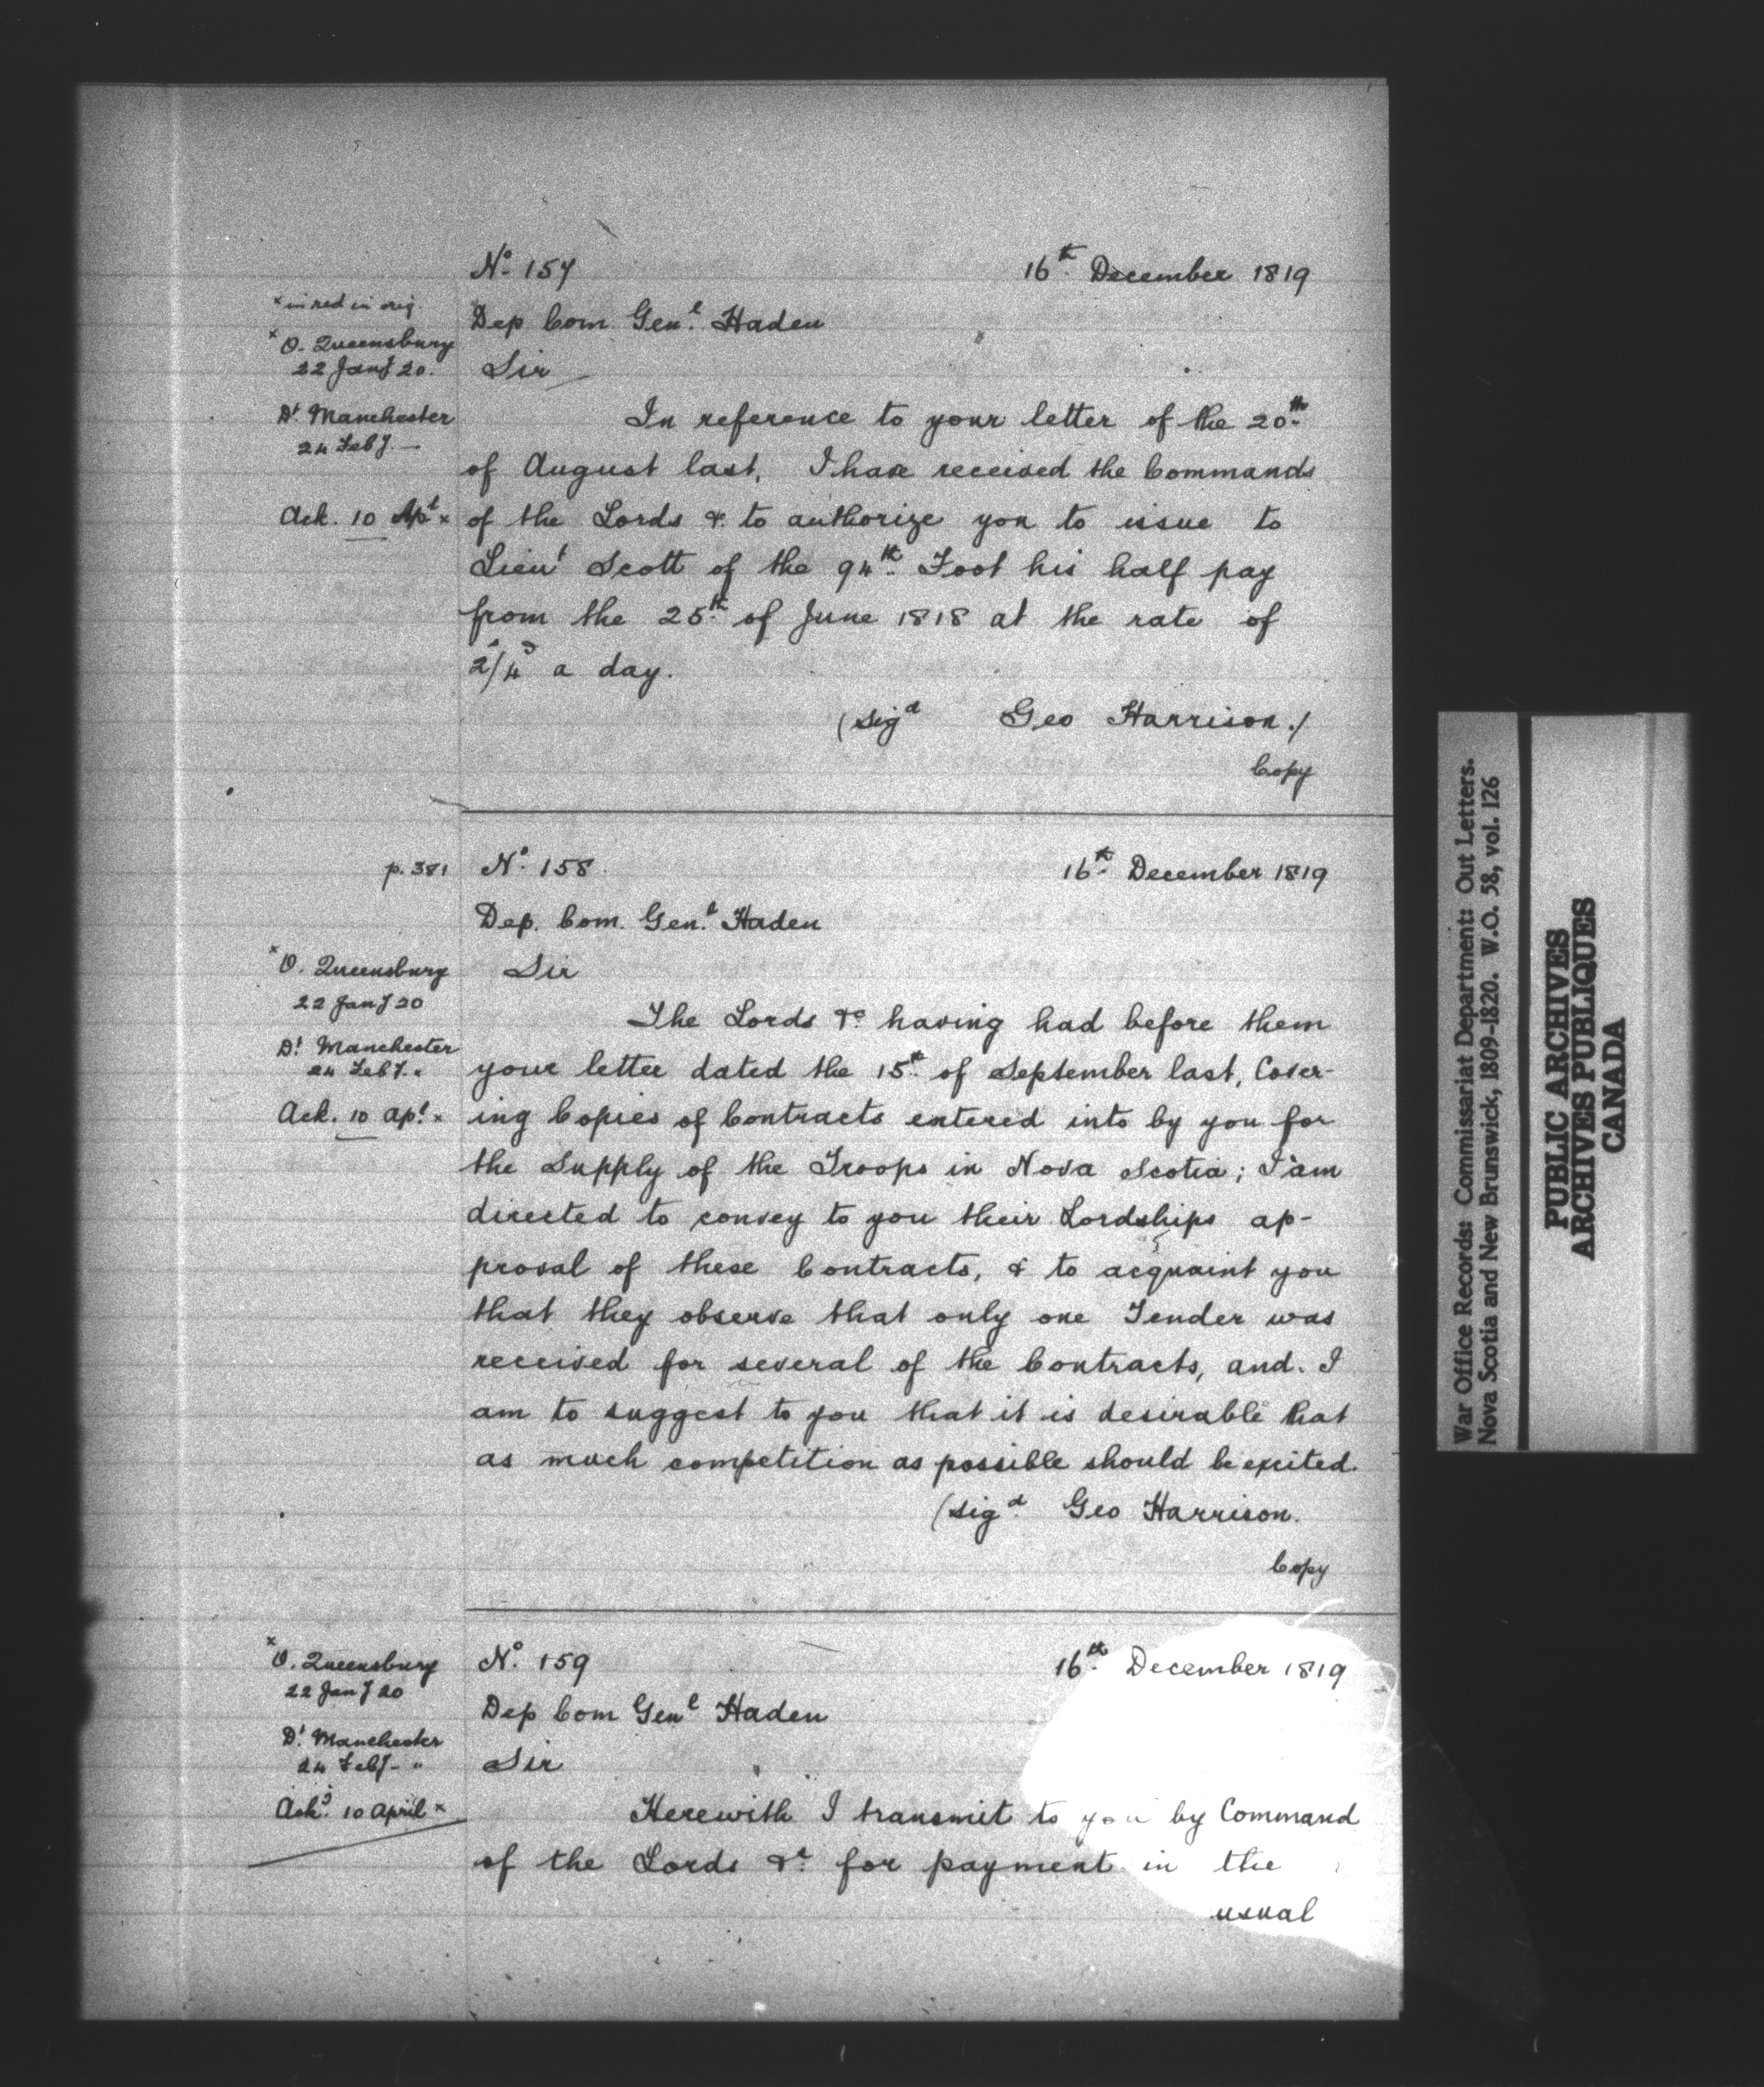 No. 157
16th. December 1819
x in red in orig.
Dep Com Genl. Haden
x O. Queensbury
22 Jany 20.
Sir
Dt Manchester
24 Feby. —
In reference to your letter of the 20th.
of August last, I have received the Commands
Ack. 10 Apl x
of the Lords &. to authorize you to issue to
Lieut Scott of the 94th. Foot his half pay
from the 25th. of June 1818 at the rate of
2s/4d a day.
(Sigd Geo Harrison.)
Copy
p. 381
No. 158.
16th. December 1819
Dep. Com. Genl. Haden
x O. Queensbury
22 Jany 20
Sir
The Lords &c. having had before them
Dt. Manchester
24 Feby. "
your letter dated the 15th. of September last, Cover-
Ack. 10 apl. x
ing Copies of Contracts entered into by you for
the Supply of the Troops in Nova Scotia; I am
directed to convey to you their Lordships ap-
proval of these Contracts, & to acquaint you
that they observe that only one Tender was
received for several of the Contracts, and. I
am to suggest to you that it is desirable that
as much competition as possible should be excited.
(Sigd. Geo Harrison.
Copy
x O. Queensbury
22 Jany 20
No. 159
16th. December 1819
Dep Com Genl Haden
Dt. Manchester
24 Feby - "
Sir
Ackd. 10 April x
Herewith I transmit to you by Command
of the Lords &c. for payment in the
usual
War Office Records: Commissariat Department: Out Letters.
Nova Scotia and New Brunswick, 1809-1820. W.O. 58, vol. 126
PUBLIC ARCHIVES
ARCHIVES PUBLIQUES
CANADA